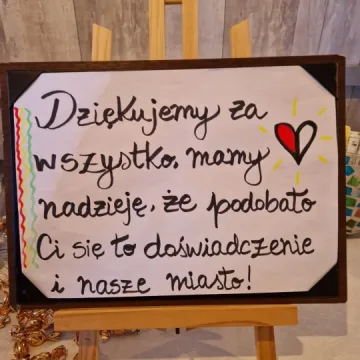 Dziękujemy za
wszystko, mamy
nadzieję, że podobało
Ci się to doświadczenie
i nasze miasto!